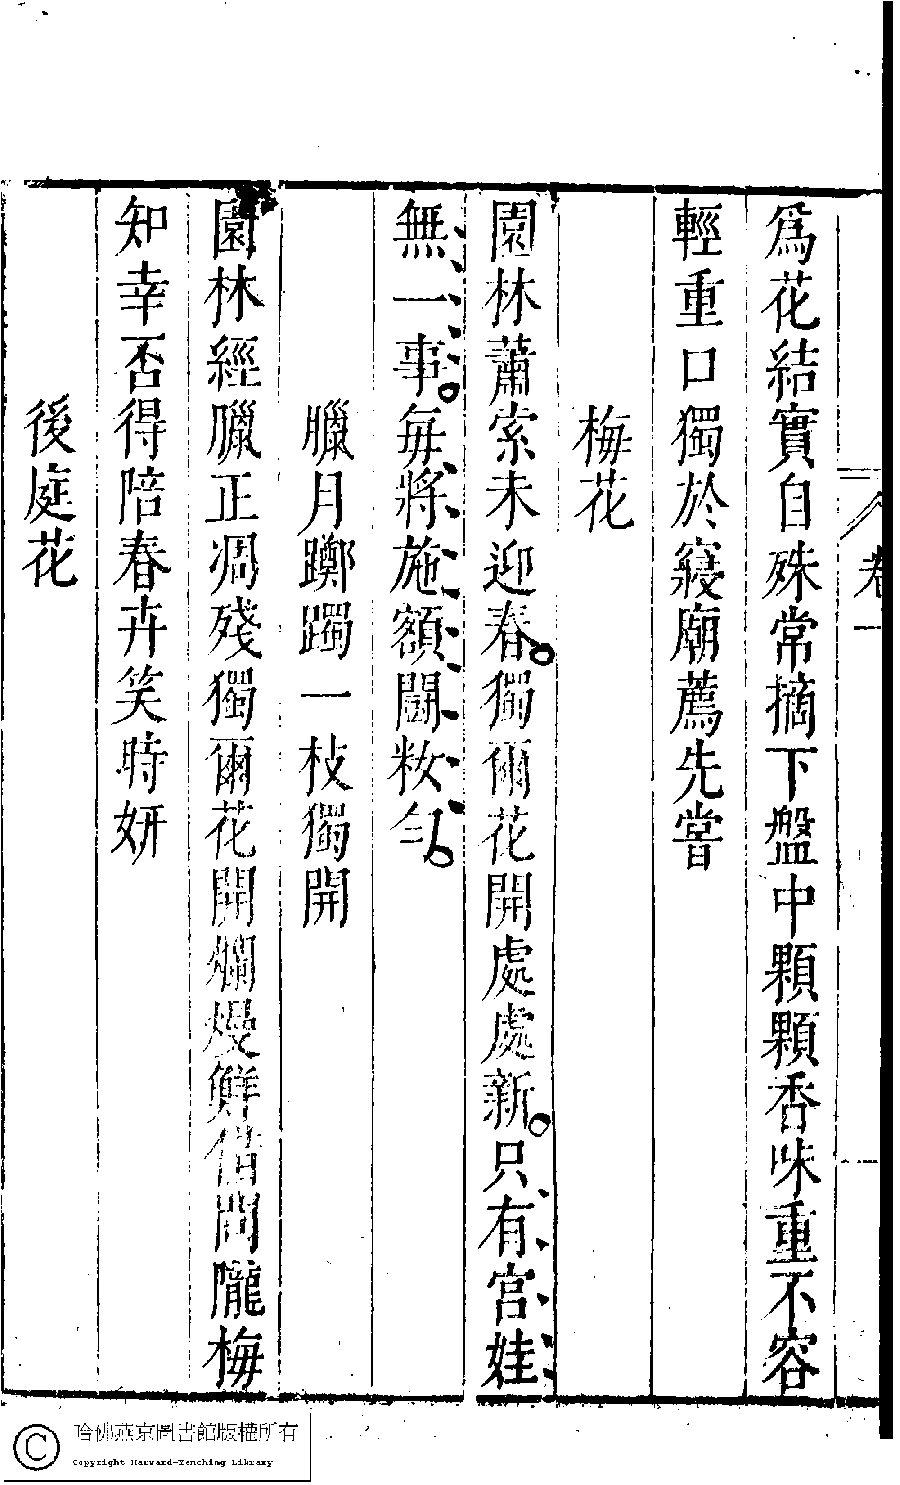 卷一
爲花結實自殊常摘下盤中顆顆香味重不容
輕重口獨於寢廟薦先嘗
梅花
園林蕭索未迎春獨爾花開處處新只有宮娃
無一事每將施額鬬粧勻
臘月躑躅一枝獨開
園林經臘正凋殘獨爾花開爛熳鮮借問隴梅
知幸否得陪春卉笑時妍
後庭花
哈佛燕京圖書館版權所有
Copyright Harvard-Yenching Library